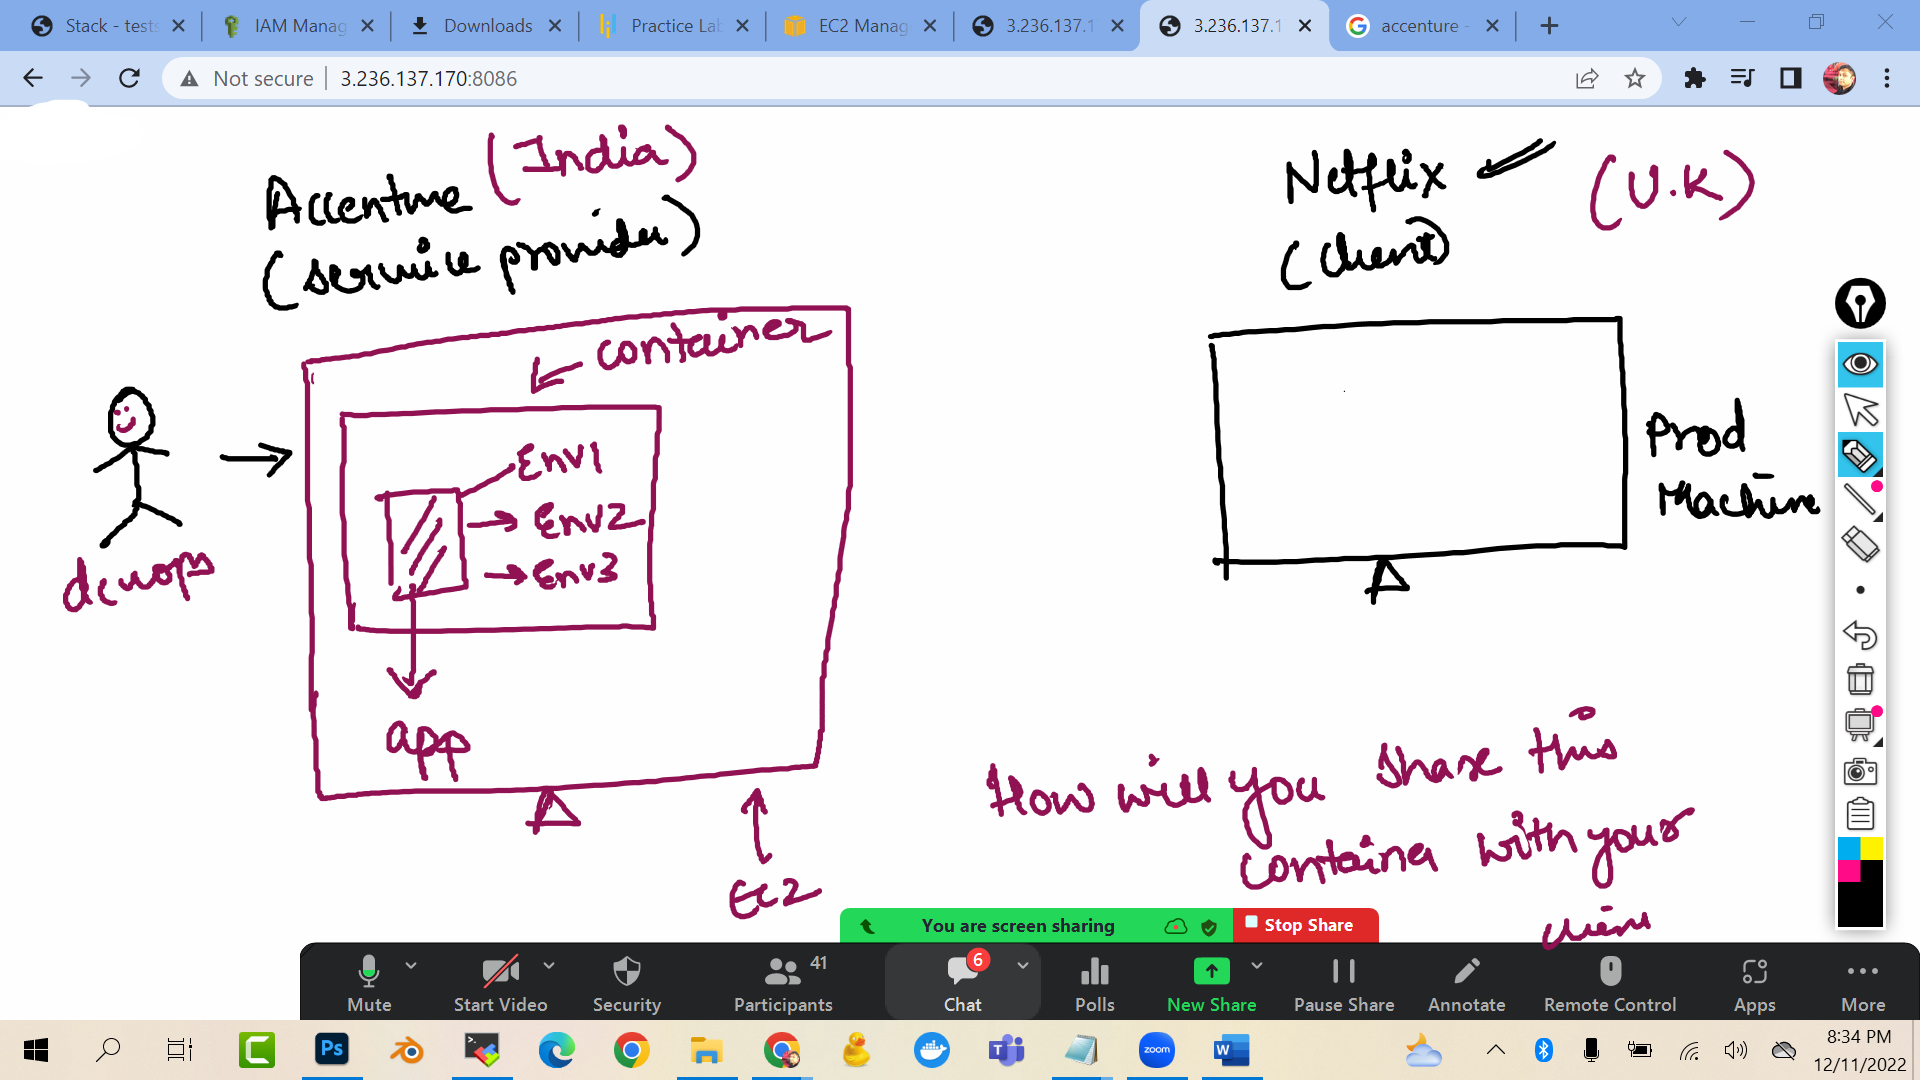 Stack - tests
IAM Manag
Downloads
Practice Lab
EC2 Manag
3.236.137.1
3.236.137.1
accenture -
Not secure
3.236.137.170:8086
Accenture (India)
(service provider)
Netflix (U.K)
(client)
container
Env1
Env2
Env3
devops
app
EC2
Prod
Machine
How will you share this
container with your
client
You are screen sharing
Stop Share
41
6
Mute
Start Video
Security
Participants
Chat
Polls
New Share
Pause Share
Annotate
Remote Control
Apps
More
Ps
zoom
W
8:34 PM
12/11/2022